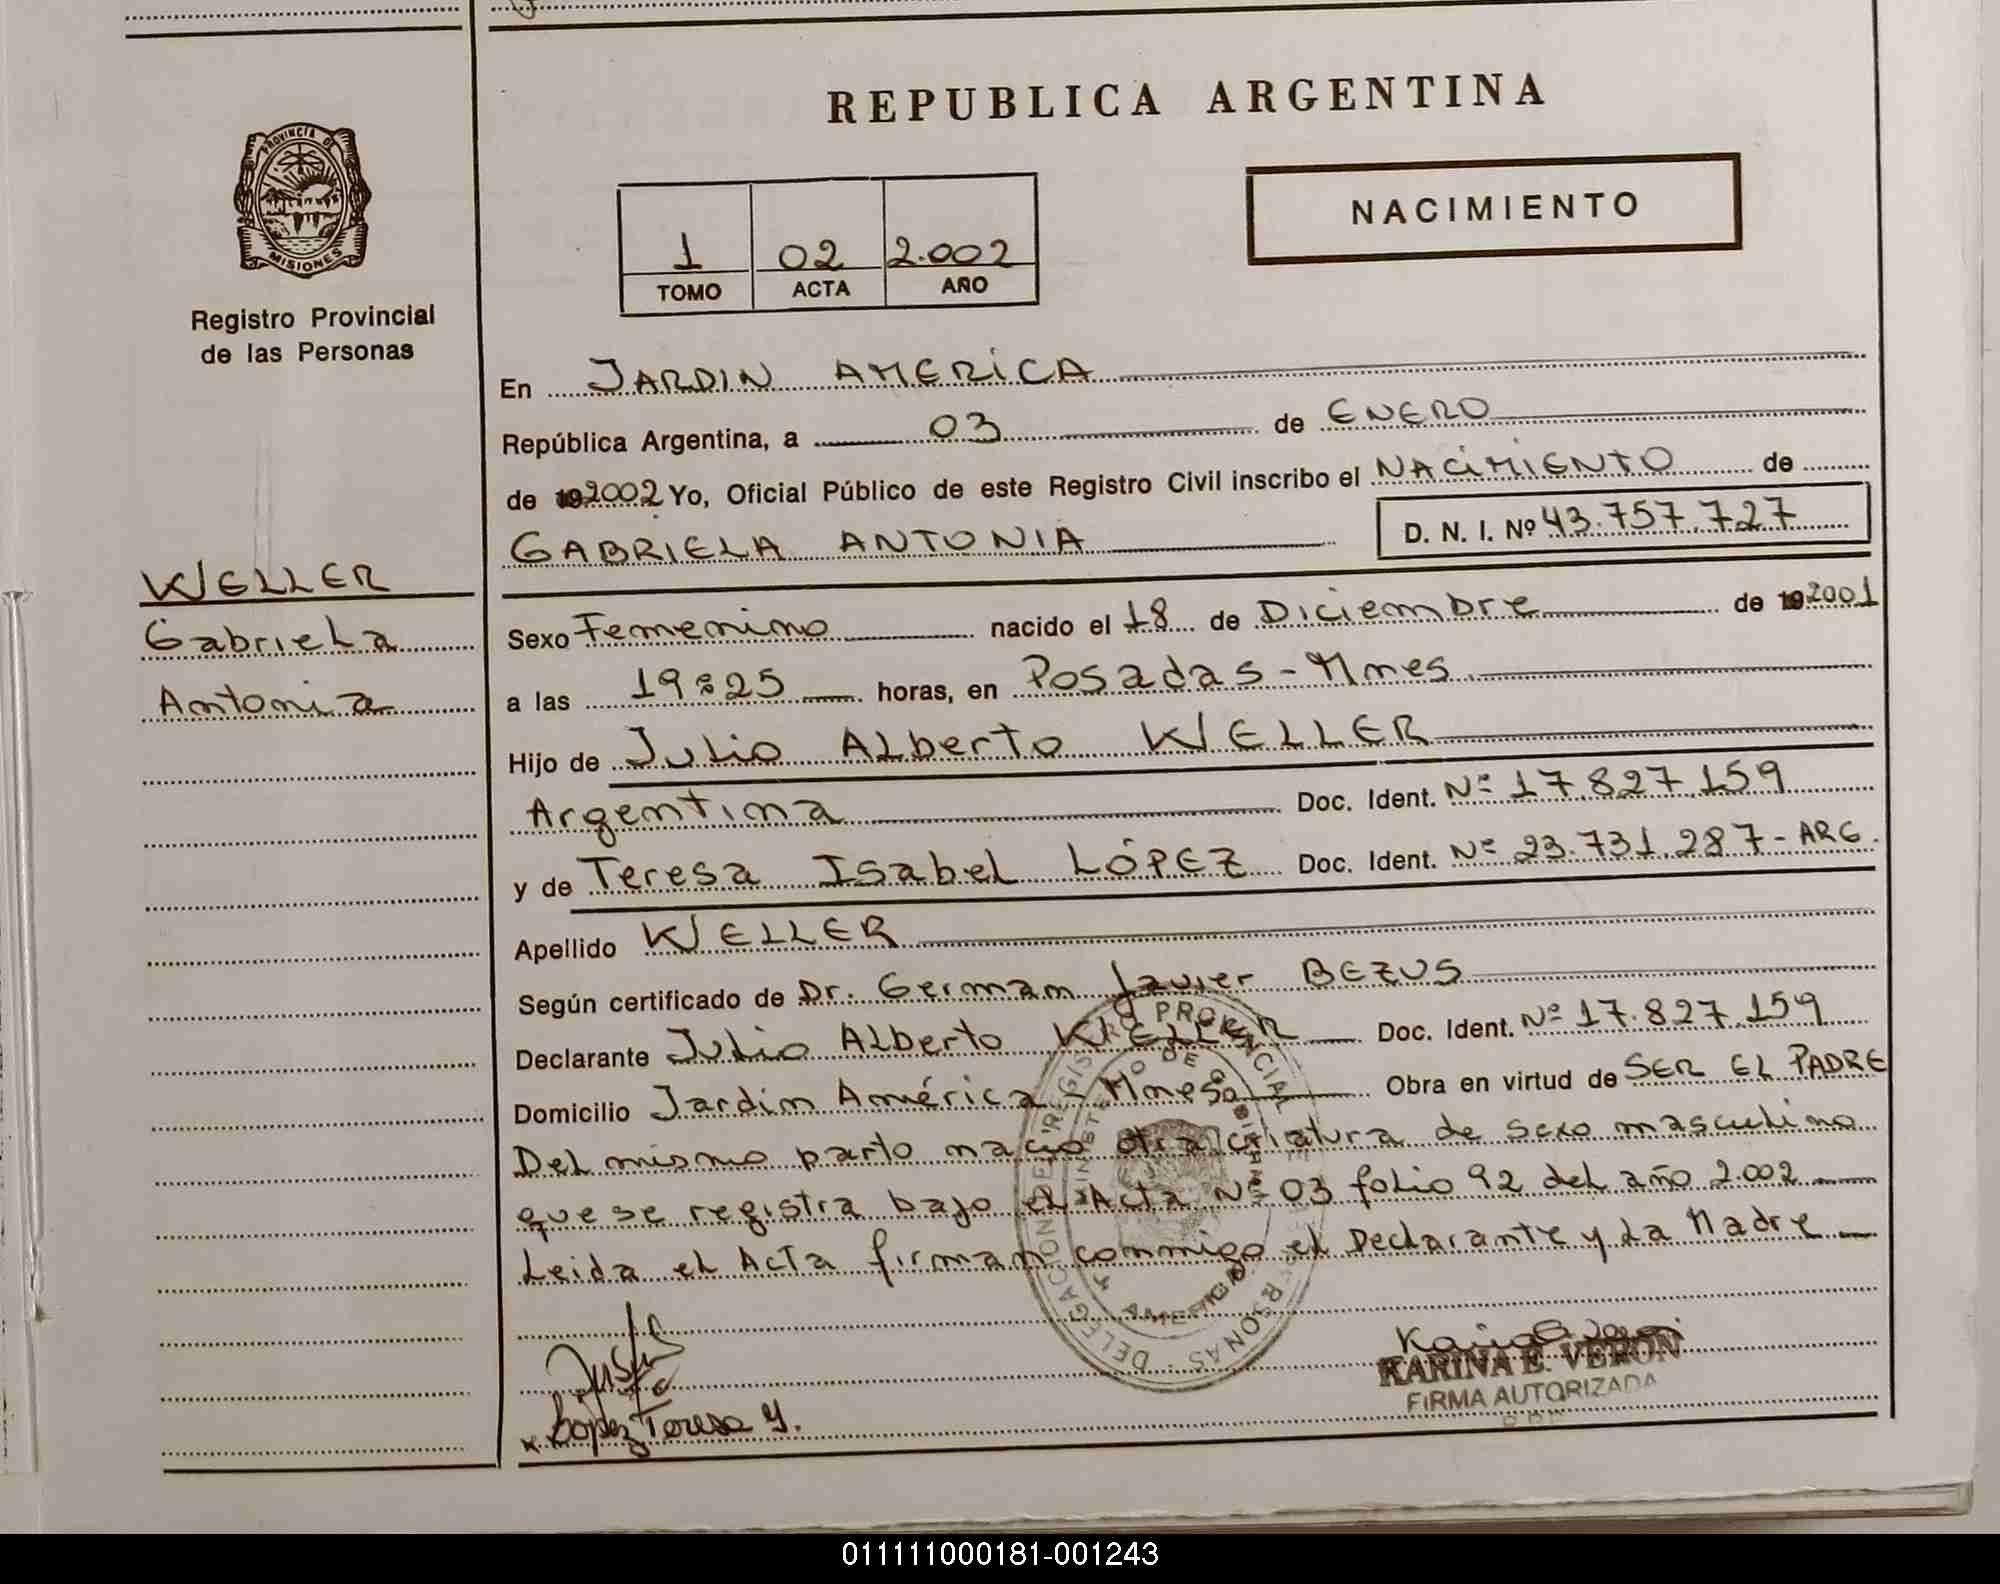 REPUBLICA ARGENTINA
PROVINCIA DE MISIONES
Registro Provincial
de las Personas
NACIMIENTO
1 02 2.002
TOMO ACTA AÑO
En JARDIN AMERICA
República Argentina, a 03 de ENERO
de 192002 Yo, Oficial Público de este Registro Civil inscribo el NACIMIENTO de
GABRIELA ANTONIA D. N. I. Nº 43.757.727
WELLER
Gabriela
Antonia
Sexo Femenino nacido el 18 de Diciembre de 192001
a las 19:25 horas, en Posadas - Mnes.
Hijo de Julio Alberto WELLER
Argentina Doc. Ident. Nº 17.827.159
y de Teresa Isabel LÓPEZ Doc. Ident. Nº 23.731.287 - ARG.
Apellido WELLER
Según certificado de Dr. German Javier BEZUS
Declarante Julio Alberto WELLER Doc. Ident. Nº 17.827.159
Domicilio Jardin América - Mnes. Obra en virtud de SER EL PADRE
Del mismo parto nacio otra criatura de sexo masculino
que se registra bajo el Acta Nº 03 folio 92 del año 2.002
Leida el Acta firman conmigo el Declarante y La Madre
Lopez Teresa Y.
KARINA E. VERON
FIRMA AUTORIZADA
011111000181-001243